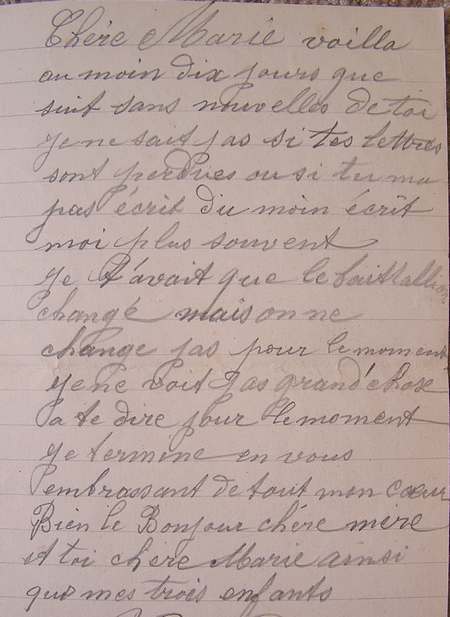 Chère Marie voilla
au moin dix jours que
suit sans nouvelles de toi
je ne sait pas si tes lettres
sont perdues ou si tu ma
pas écrit du moin écrit
moi plus souvent
je t'avait que le battallion
changé mais on ne
change pas pour le moment
je ne voit pas grand'chose
a te dire pour le moment
je termine en vous
embrassant de tout mon cœur
Bien le Bonjour chére mère
et toi chere Marie ainsi
que mes trois enfants